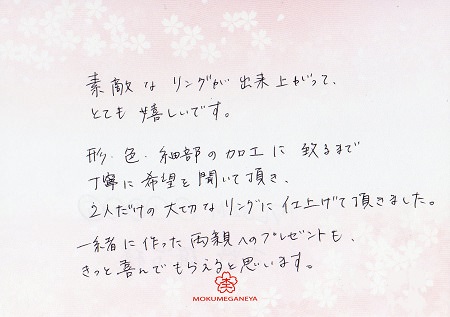 素敵なリングが出来上がって、
とても嬉しいです。
形・色・細部の加工に致るまで
丁寧に希望を聞いて頂き、
2人だけの大切なリングに仕上げて頂きました。
一緒に作った両親へのプレゼントも、
きっと喜んでもらえると思います。
MOKUMEGANEYA